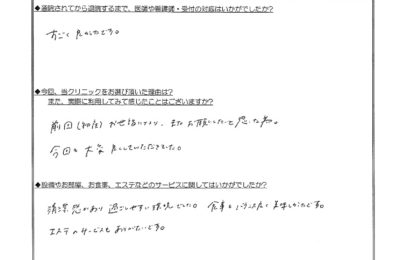 ◆通院されてから退院するまで、医師や看護婦・受付の対応はいかがでしたか?
すごく良かったです。
◆今回、当クリニックをお選び頂いた理由は?
また、実際に利用してみて感じたことはございますか?
前回(初産)お世話になり、またお願いしたいと思った為。
今回も大変良くしていただきました。
◆設備やお部屋、お食事、エステなどのサービスに関してはいかがでしたか?
清潔感があり過ごしやすい環境でした。食事もボリューム良く美味しかったです。
エステのサービスもありがたいです。